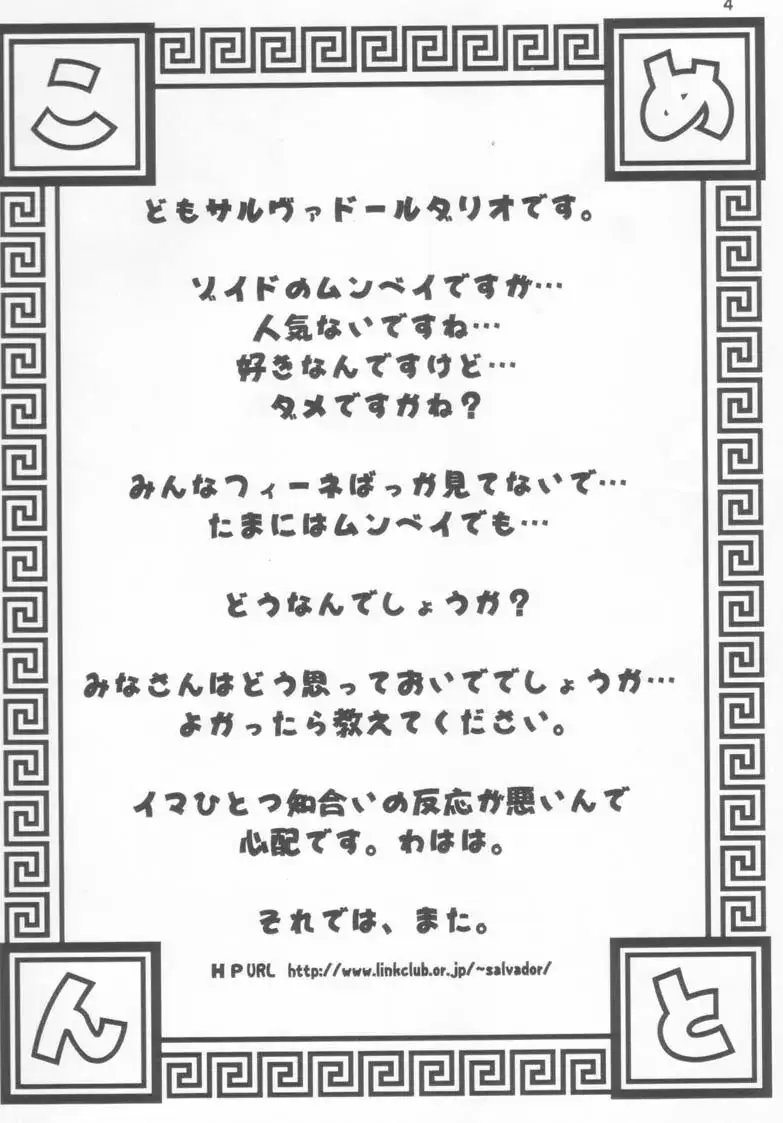 4
こ め
どもサルヴァドールダリオです。
ゾイドのムンベイですが…
人気ないですね…
好きなんですけど…
ダメですかね?
みんなフィーネばっか見てないで…
たまにはムンベイでも…
どうなんでしょうか?
みなさんはどう思っておいででしょうか…
よかったら教えてください。
イマひとつ知合いの反応が悪いんで
心配です。わはは。
それでは、また。
HPURL http://www.linkclub.or.jp/~salvador/
ん と